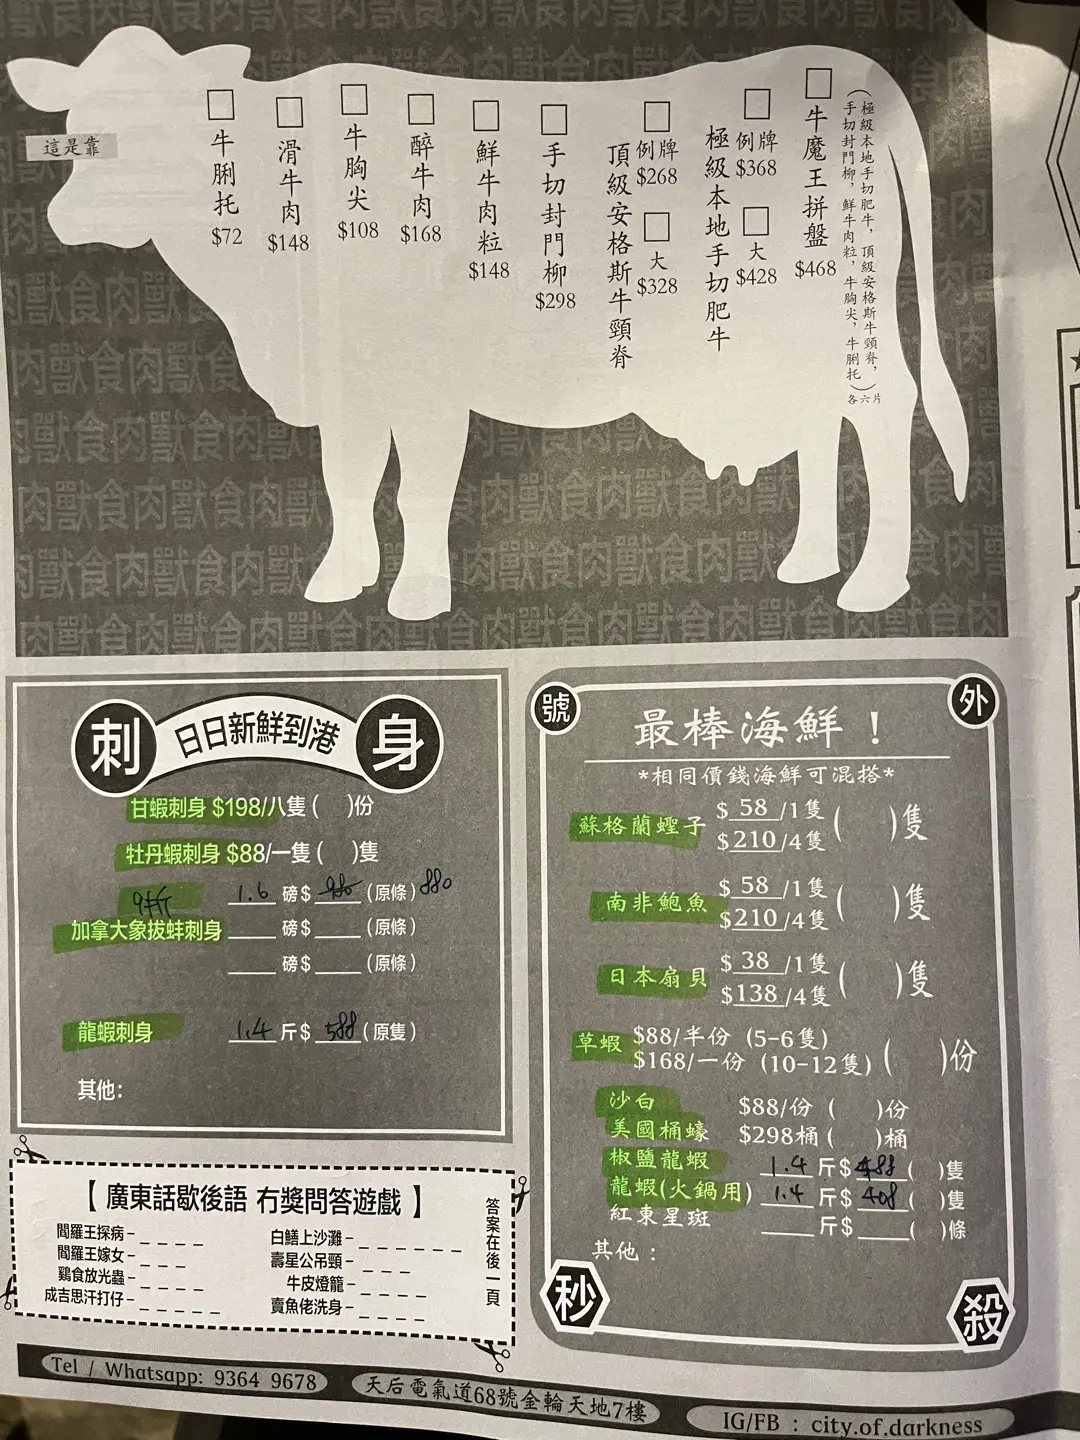 這是靠
牛脷托
$72
滑牛肉
$148
牛胸尖
$108
醉牛肉
$168
鮮牛肉粒
$148
手切封門柳
$298
頂級安格斯牛頸脊
例牌
$268
大
$328
極級本地手切肥牛
例牌
$368
大
$428
牛魔王拼盤
$468
(極級本地手切肥牛，頂級安格斯牛頸脊，
手切封門柳，鮮牛肉粒，牛胸尖，牛脷托)
各六片
刺身
日日新鮮到港
甘蝦刺身 $198/八隻 ( )份
牡丹蝦刺身 $88/一隻 ( )隻
1.6 磅 $ 980 (原條) 880
加拿大象拔蚌刺身 磅 $ (原條)
磅 $ (原條)
龍蝦刺身 1.4 斤 $ 588 (原隻)
其他:
【 廣東話歇後語 冇獎問答遊戲 】
答案在後一頁
閻羅王探病- _ _ _ _
閻羅王嫁女- _ _ _
鷄食放光蟲- _ _ _ _
成吉思汗打仔- _ _ _ _ _
白鱔上沙灘- _ _ _ _ _ _
壽星公吊頸- _ _ _
牛皮燈籠- _ _ _ _
賣魚佬洗身- _ _ _ _
號外
最棒海鮮！
*相同價錢海鮮可混搭*
蘇格蘭蟶子 $ 58 /1隻 ( )隻
$210/4隻
南非鮑魚 $ 58 /1隻 ( )隻
$210/4隻
日本扇貝 $ 38 /1隻 ( )隻
$138/4隻
草蝦 $88/半份 (5-6隻)
$168/一份 (10-12隻) ( )份
沙白 $88/份 ( )份
美國桶蠔 $298桶 ( )桶
椒鹽龍蝦 1.4 斤$ 488 ( )隻
龍蝦(火鍋用) 1.4 斤$ 408 ( )隻
紅東星斑 斤$ ( )條
其他：
秒殺
Tel / Whatsapp: 9364 9678
天后電氣道68號金輪天地7樓
IG/FB : city.of.darkness